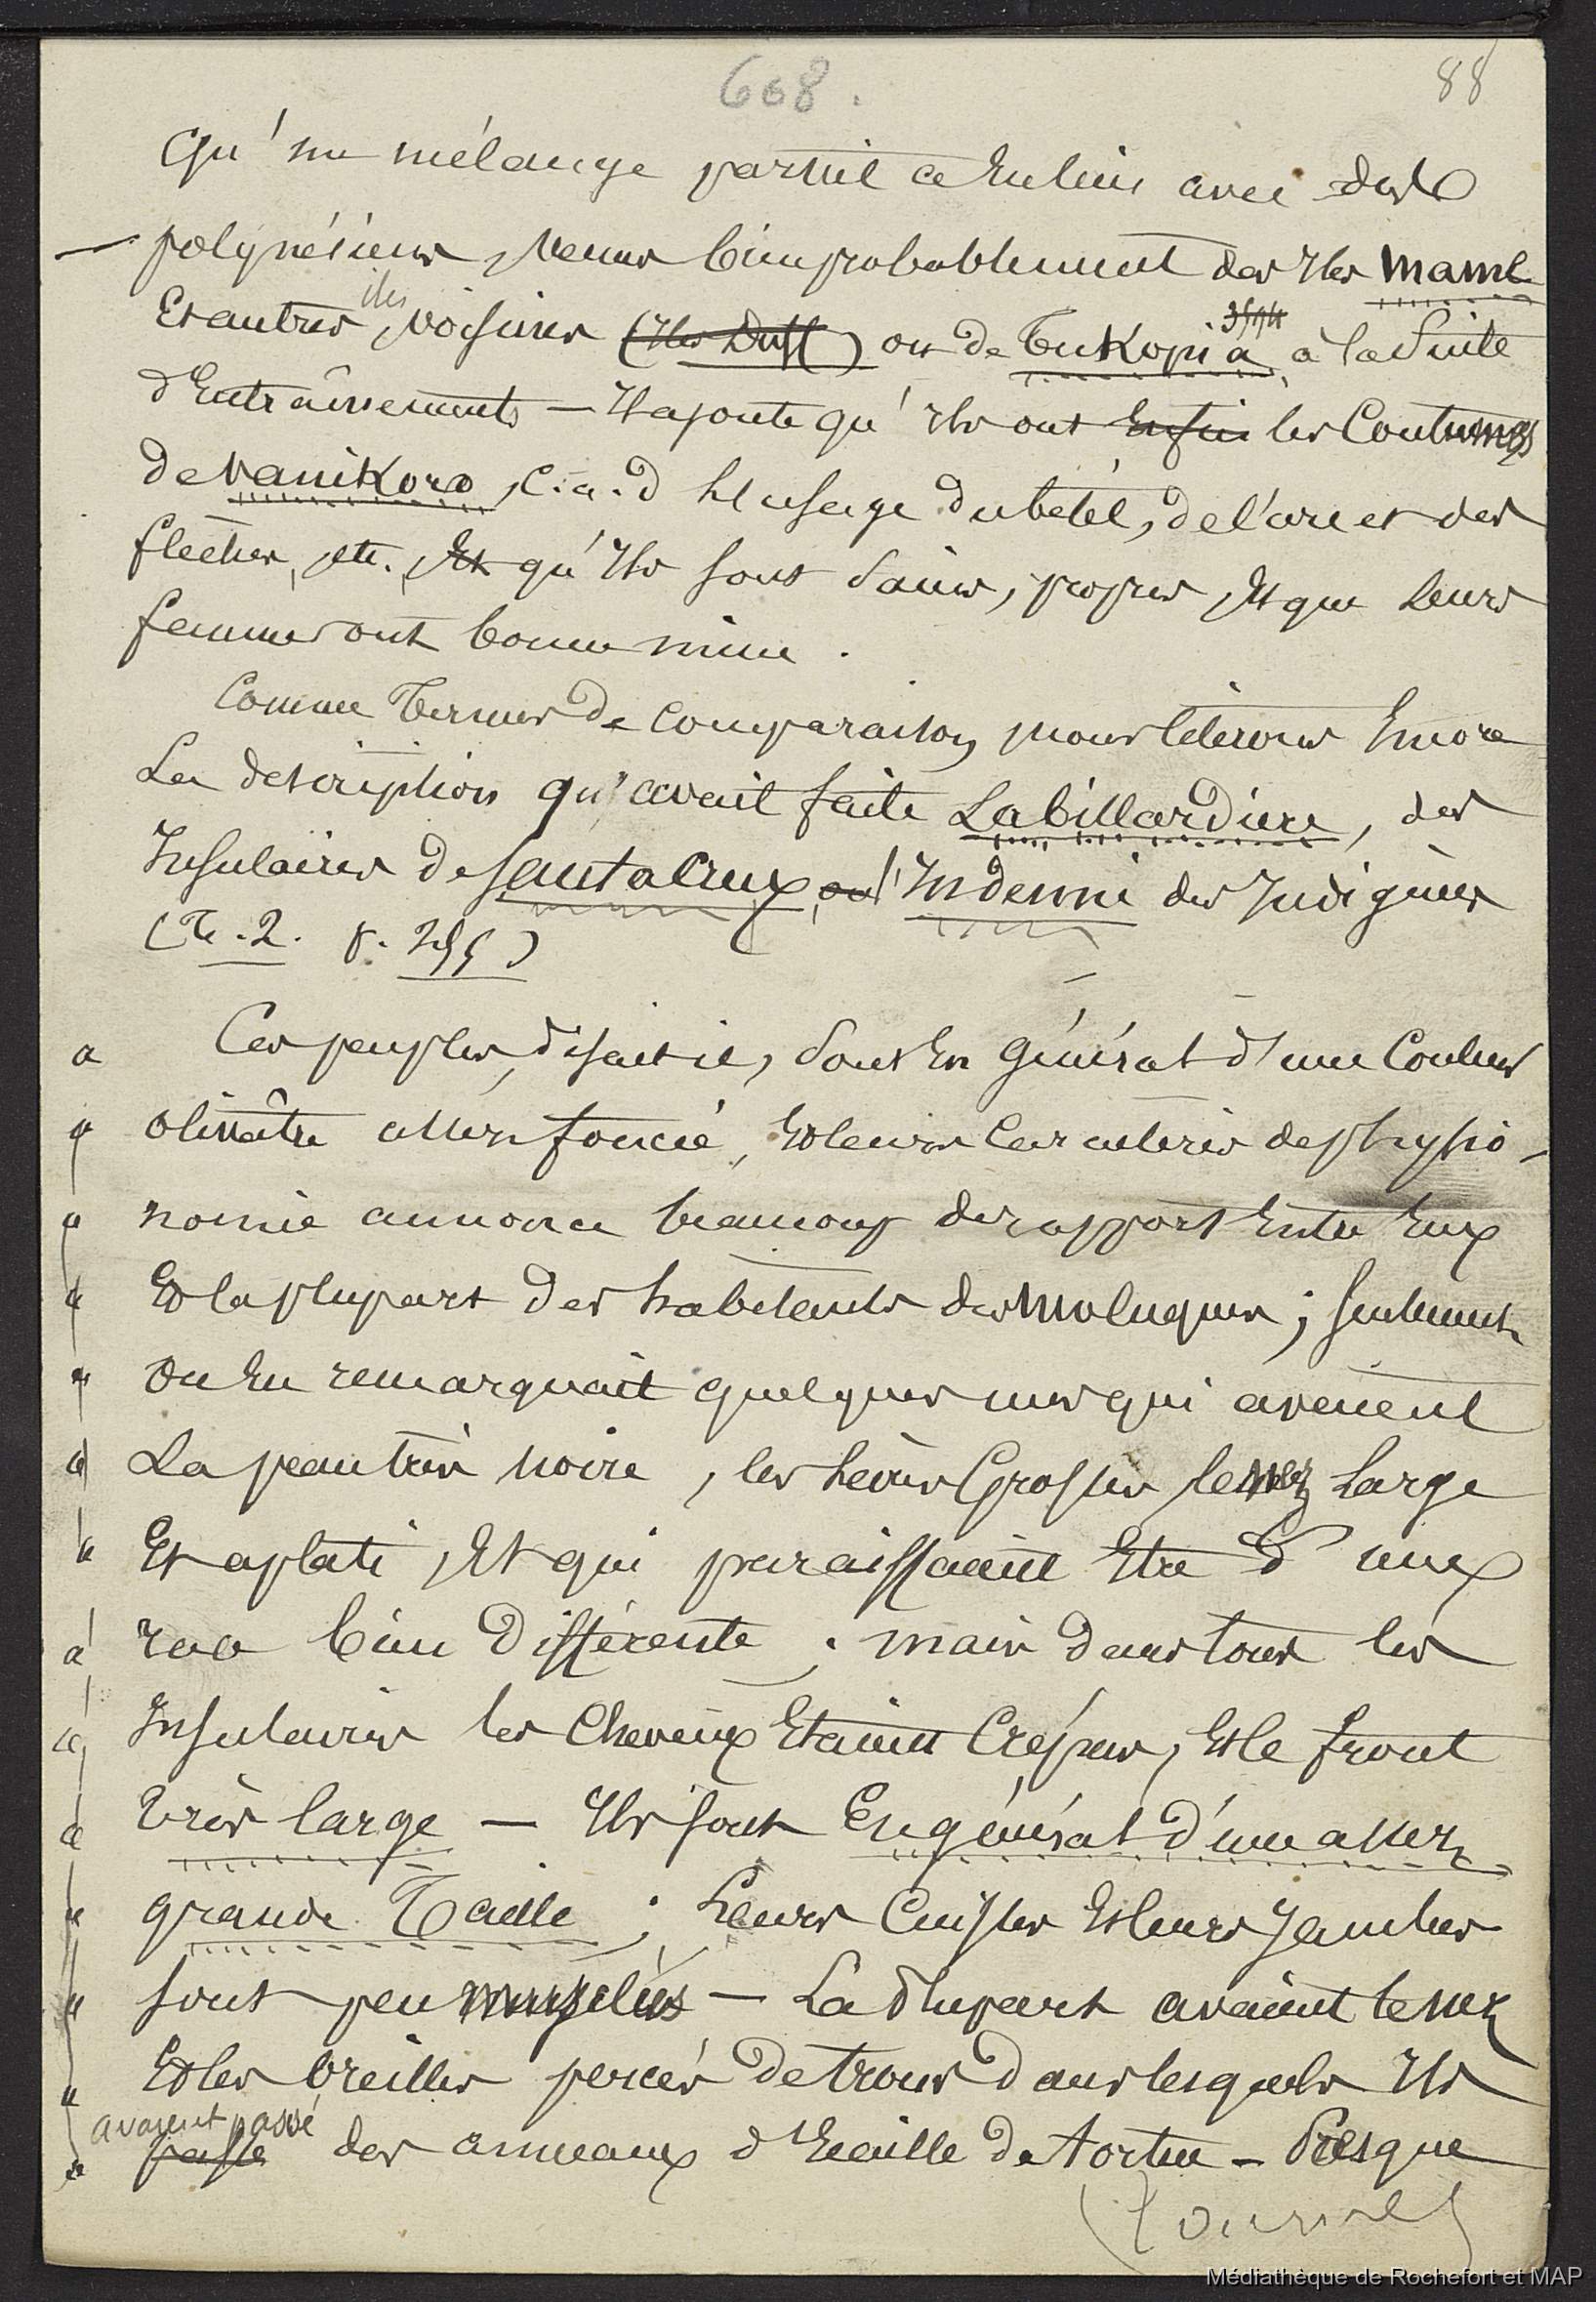 608.
88
qu'un mélange pareil ait eu lieu avec des
— polynésiens, venus bien probablement des Iles Mami
Et autres iles voisines (Iles Duff) ou de Tukopia à la suite
d'Entraînements — Il ajoute qu'ils ont Enfin les Coutumes
de Vanikoro, c.a.d l'usage du bétel, de l'arc et des
flèches, etc. Et qu'Ils sont sains, propres, Et que leurs
femmes ont bonne mine.
Comme Termes de Comparaison, nous citerons Encore
La description qu'avait faite Labillardiere, des
Insulaires de Santa Cruz, ou l'Indenni des Indigènes
(T. 2. p. 255)
Ces peuples, disait-il, sont En Général d'une Couleur
olivâtre assez foncée, Et leurs Caractères de physio-
nomie annonce beaucoup de rapport Entre Eux
Et la plupart des habitants des Moluques; seulement
on En remarquait quelques uns qui avaient
La peau très noire, les lèvres Grosses, le nez Large
Et aplati, Et qui paraissaient Etre d'une
race bien différente; mais dans tous les
Insulaires les Cheveux Etaient Crépus, Et le front
très large — Ils sont En général d'une assez
grande Taille; Leurs Cuisses Et leurs Jambes
sont peu musclées — La Plupart avaient le nez
Et les Oreilles percés de trous dans lesquels Ils
avaient passé
passé des anneaux d'Ecaille de tortue — Presque
(tournez)
Médiathèque de Rochefort et MAP